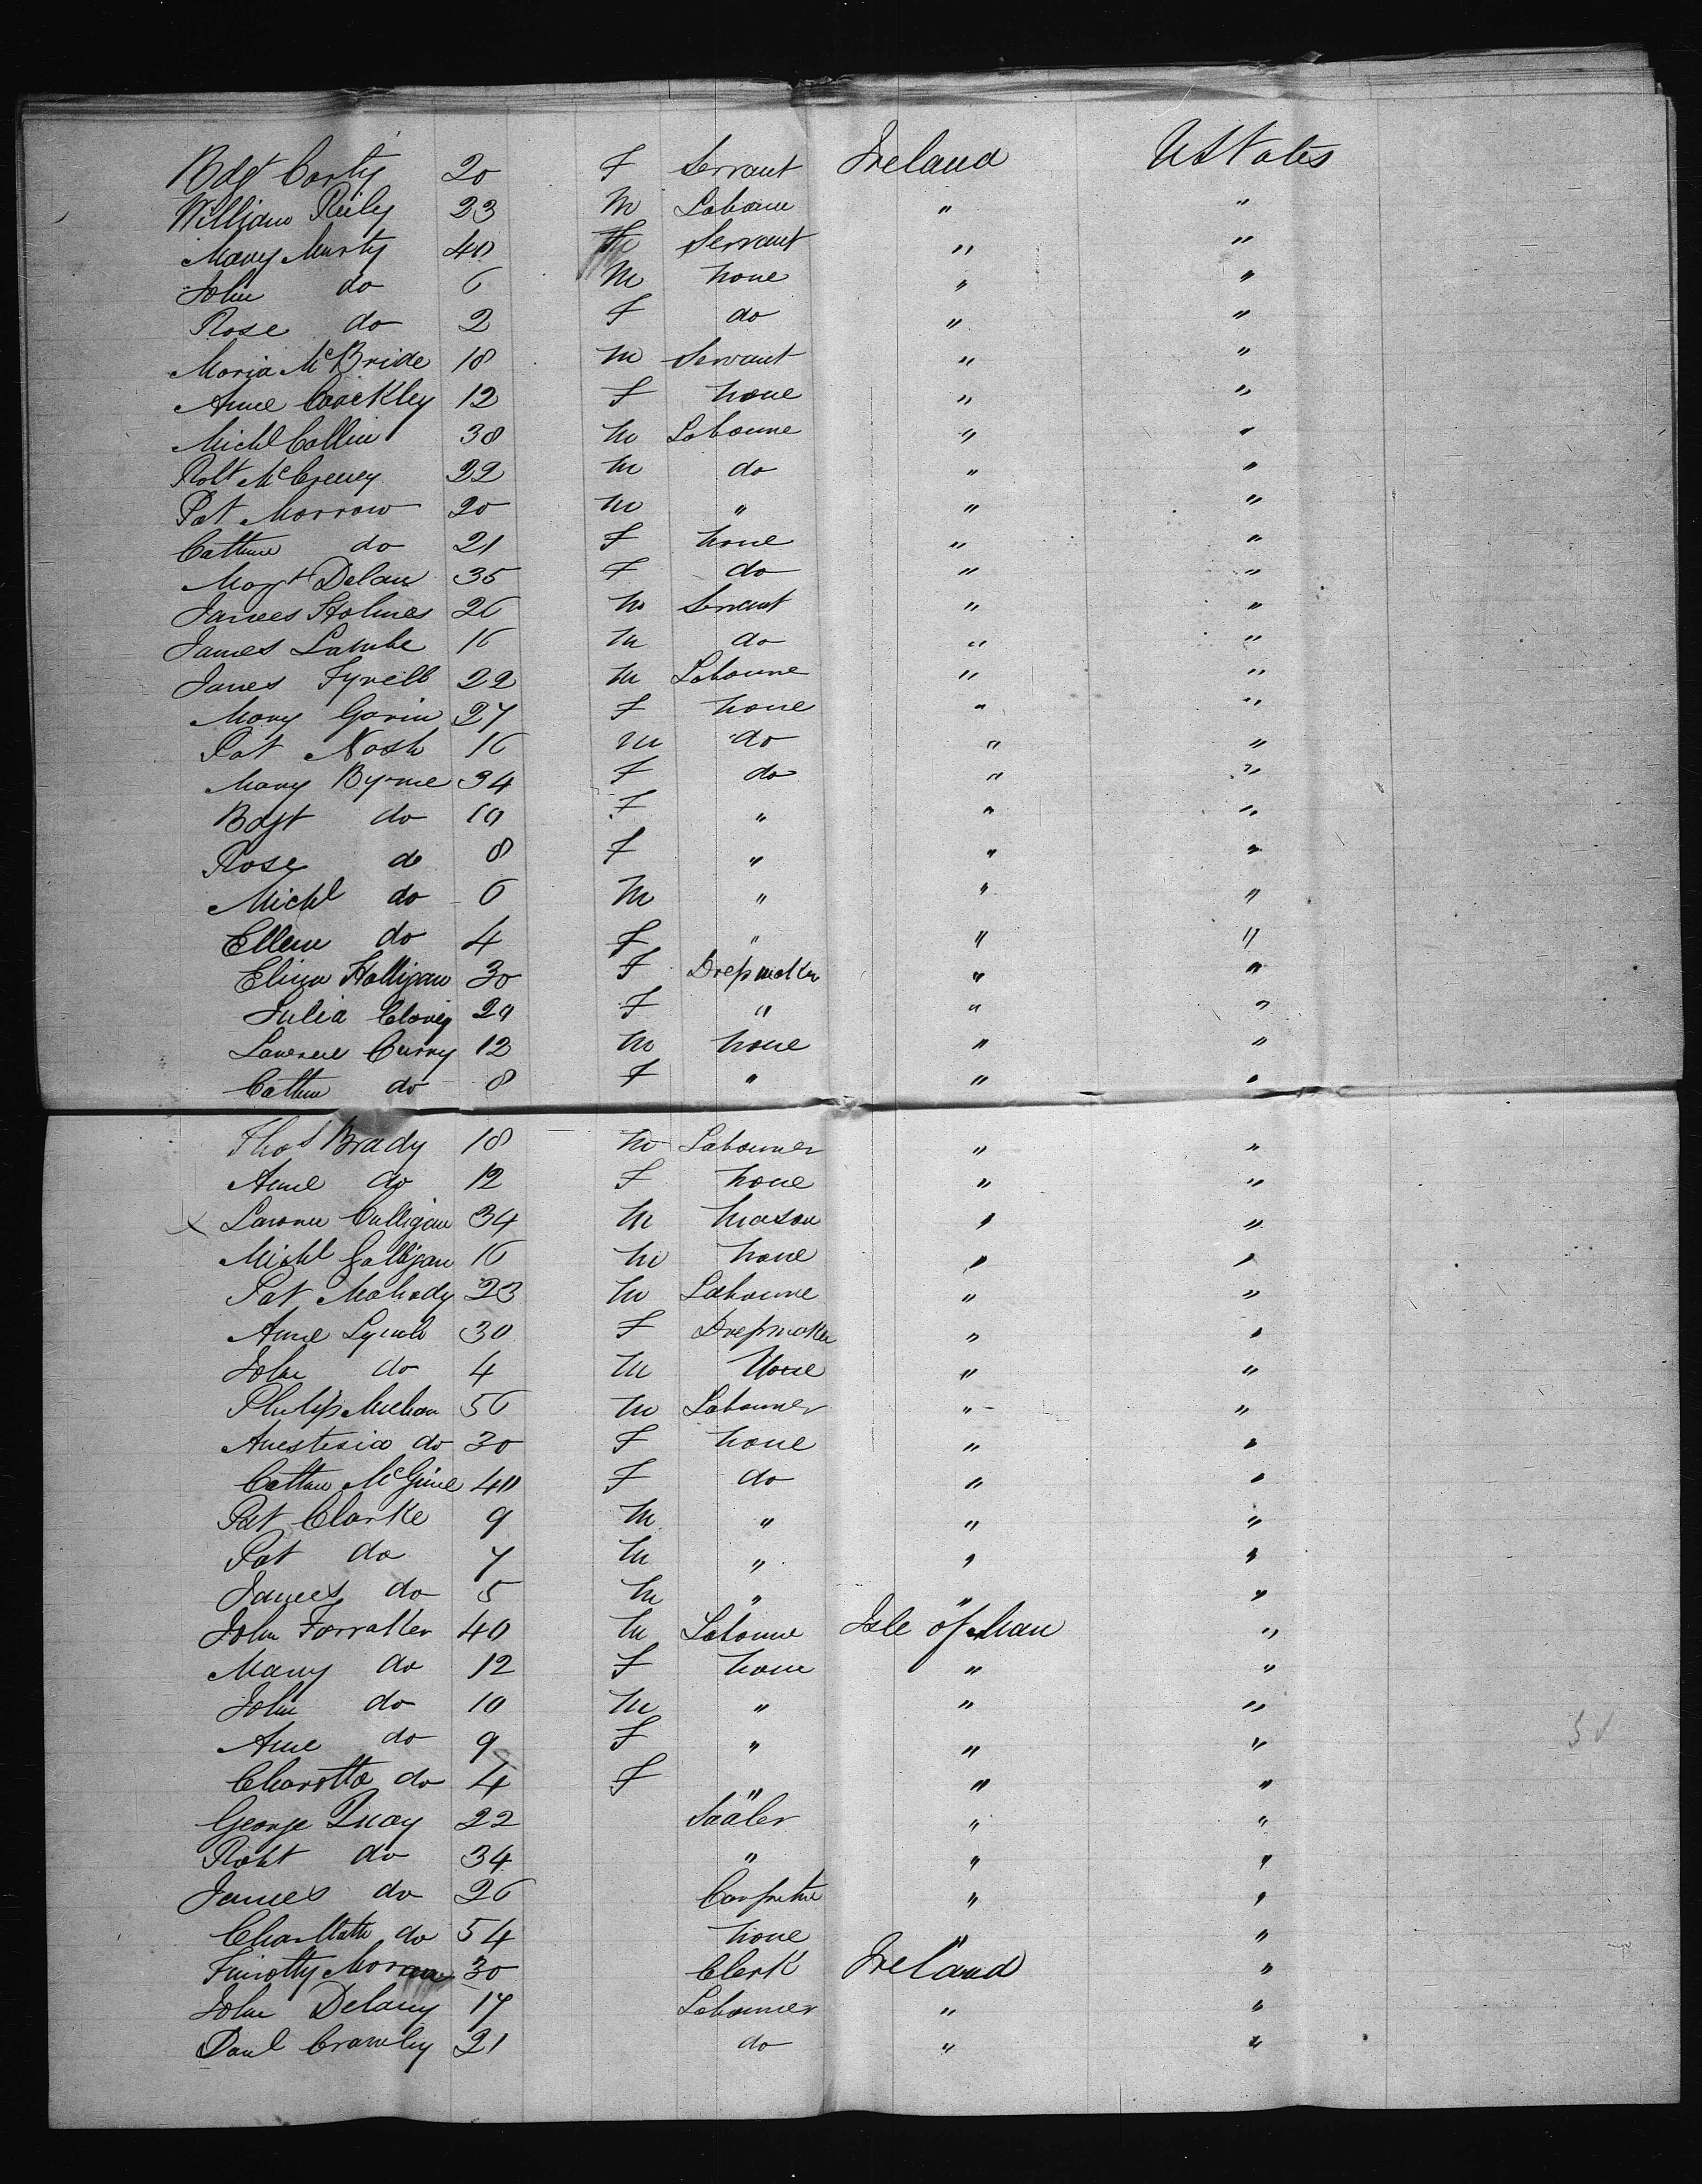 Bdgt Carty 20 F Servant Ireland U States
William Reily 23 M Laboure " "
Mary Murty 40 F Servant " "
John do 6 M none " "
Rose do 2 F do " "
Maria McBride 18 M Servant " "
Anne Coackley 12 F none " "
Michl Collin 38 M Laboure " "
Robt McCreney 22 M do " "
Pat Morrow 20 M " " "
Cathne do 21 F none " "
Margt Delan 35 F do " "
James Holmes 26 M Servant " "
James Lambe 16 M do " "
James Tyrell 22 M Laboure " "
Mary Gavin 27 F none " "
Pat Nash 16 M do " "
Mary Byrne 34 F do " "
Bdgt do 10 F " " "
Rose do 8 F " " "
Michl do 6 M " " "
Ellen do 4 F " " "
Eliza Halligan 30 F Dressmaker " "
Julia 20 F " " "
Lawrence Curry 12 M none " "
Cathne do 8 F " " "
Thos Brady 18 M Labourer " "
Anne do 12 F none " "
x Lawrence Culligan 34 M Mason " "
Michl Galligan 16 M none " "
Pat Mahady 23 M Laboure " "
Anne Lynch 30 F Dressmaker " "
John do 4 M None " "
Philip Meehan 56 M Labourer " "
Anestesia do 30 F none " "
Cathne McGinne 40 F do " "
Pat Clarke 9 M " " "
Pat do 7 M " " "
James do 5 M " " "
John Farraker 40 M Laboure Isle of Man "
Mary do 12 F none " "
John do 10 M " " "
Anne do 9 F " " "
Charotta do 4 F " " "
George Quay 22 Saaler " "
Robt do 34 " " "
James do 26 Carpetne " "
do 54 none " "
Timotty Moran 30 Clerk Ireland "
John Delany 17 Labourer " "
Danl Crawley 21 do " "